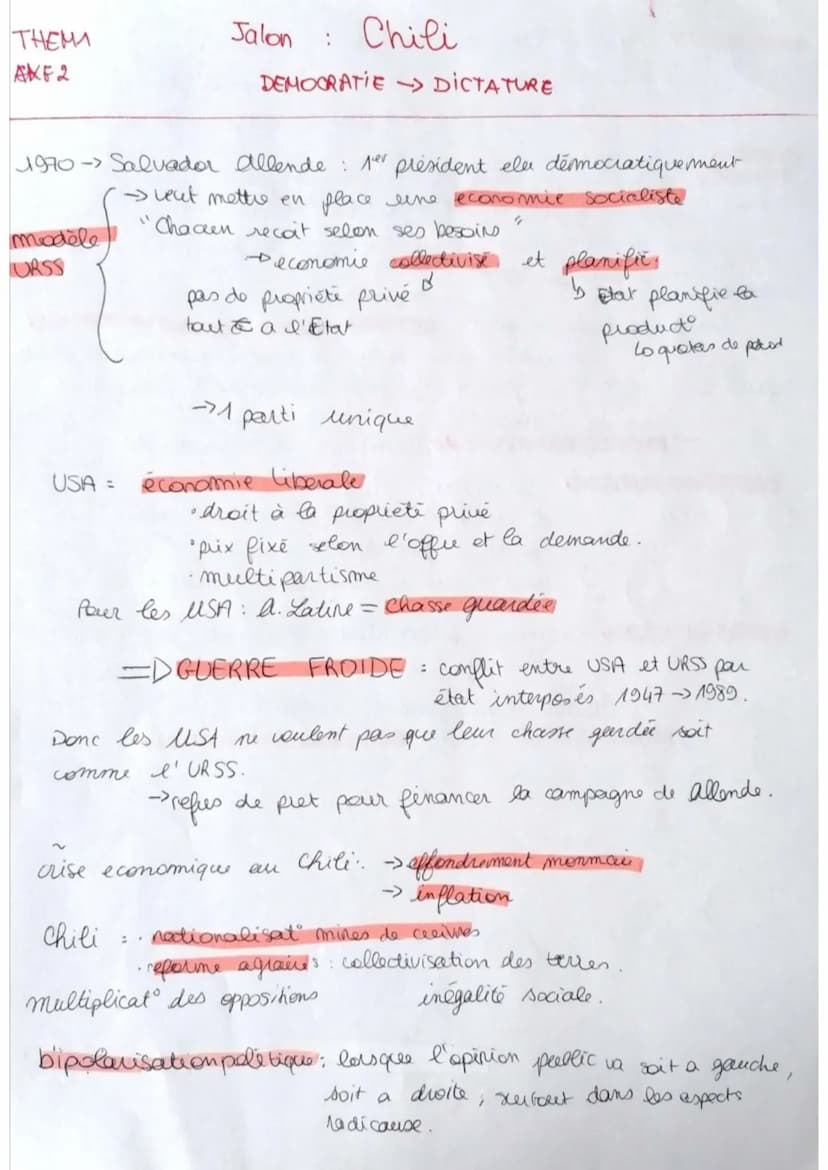 THEM1
AXE2
Jalon : Chili
DEMOCRATIE → DICTATURE
1970 → Salvador Allende : 1er président elu démocratiquement
→ veut mettre en place une economie socialiste
modèle
URSS
"Chacun recoit selon ses besoins"
→ economie collectivisé et planifié
pas de propriété privé
tout E a l'État
↳ Etat planifie la
product°
↳ quotas de prod
→ 1 parti unique
USA = économie liberale
• droit à la propriété privé
• prix fixé selon l'offre et la demande.
• multipartisme
Pour les USA : A. Latine = chasse guardée
=> GUERRE FROIDE : conflit entre USA et URSS par
état interposés 1947 → 1989.
Donc les USA ne veulent pas que leur chasse gardée soit
comme l'URSS.
→ refus de pret pour financer la campagne de Allende.
crise economique au Chili : → effondrement monnaie
→ inflation
Chili : • nationalisat° mines de cuivres
• reforme agraires : collectivisation des terres.
multiplicat° des oppositions inégalité sociale.
bipolarisation politique : lorsque l'opinion public va soit a gauche,
soit a droite, surtout dans les aspects
radicause.